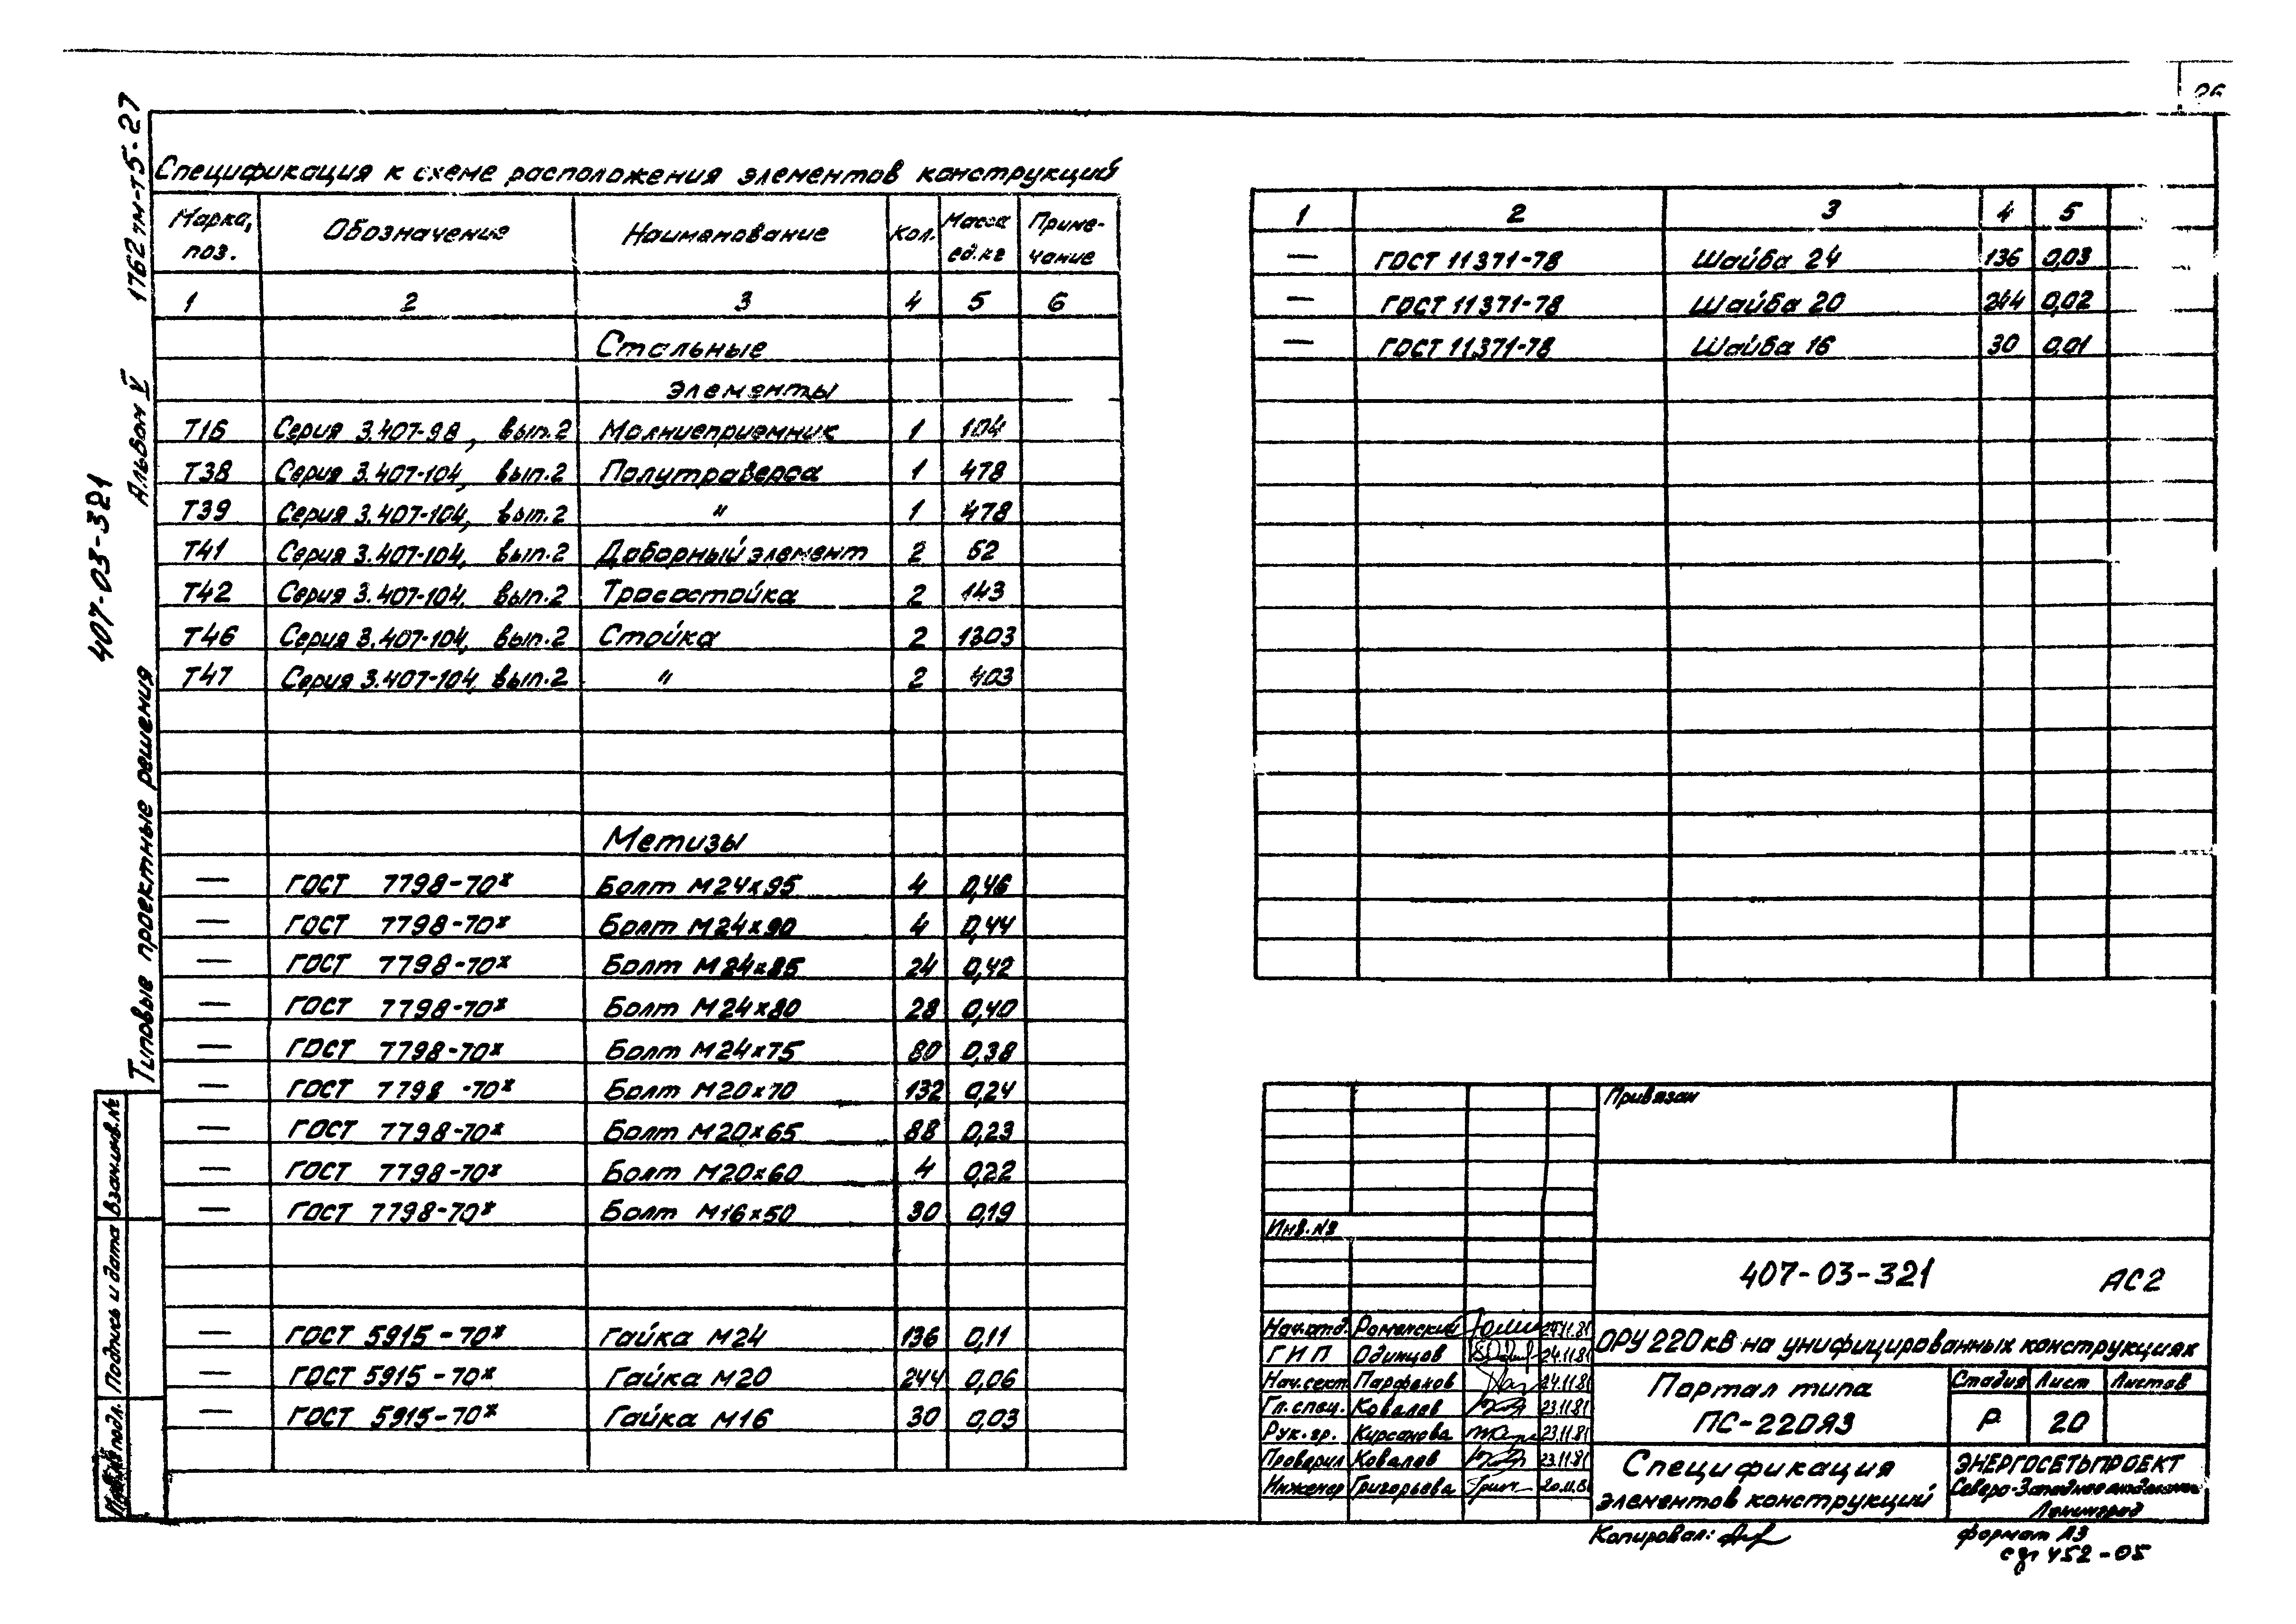 1762тм-т5-27
Альбом V
407-03-321
Типовые проектные решения
Взам.инв.№
Подпись и дата
подл.
Спецификация к схеме расположения элементов конструкций
Марка, поз. Обозначение Наименование Кол. Масса ед.кг Приме-чание
1 2 3 4 5 6
Стальные
элементы
Т16 Серия 3.407-98, вып.2 Молниеприемник 1 104
Т38 Серия 3.407-104, вып.2 Полутраверса 1 478
Т39 Серия 3.407-104, вып.2 " 1 478
Т41 Серия 3.407-104, вып.2 Доборный элемент 2 52
Т42 Серия 3.407-104, вып.2 Тросостойка 2 143
Т46 Серия 3.407-104, вып.2 Стойка 2 1303
Т47 Серия 3.407-104, вып.2 " 2 403
Метизы
— ГОСТ 7798-70х Болт М24х95 4 0,46
— ГОСТ 7798-70х Болт М24х90 4 0,44
— ГОСТ 7798-70х Болт М24х85 24 0,42
— ГОСТ 7798-70х Болт М24х80 28 0,40
— ГОСТ 7798-70х Болт М24х75 80 0,38
— ГОСТ 7798-70х Болт М20х70 132 0,24
— ГОСТ 7798-70х Болт М20х65 88 0,23
— ГОСТ 7798-70х Болт М20х60 4 0,22
— ГОСТ 7798-70х Болт М16х50 30 0,19
— ГОСТ 5915-70х Гайка М24 136 0,11
— ГОСТ 5915-70х Гайка М20 244 0,06
— ГОСТ 5915-70х Гайка М16 30 0,03
1 2 3 4 5
— ГОСТ 11371-78 Шайба 24 136 0,03
— ГОСТ 11371-78 Шайба 20 244 0,02
— ГОСТ 11371-78 Шайба 16 30 0,01
Привязан
Инв.№
407-03-321 АС2
Нач.отд. Роменский 24.11.81
ГИП Одинцов 24.11.81
Нач.сект. Парфенов 24.11.81
Гл.спец. Ковалев 23.11.81
Рук.гр. Кирсанова 23.11.81
Проверил Ковалев 23.11.81
Инженер Григорьева 20.11.81
ОРУ 220кВ на унифицированных конструкциях
Портал типа
ПС-220Я3
Стадия Лист Листов
Р 20
Спецификация
элементов конструкций
ЭНЕРГОСЕТЬПРОЕКТ
Северо-Западное отделение
Ленинград
Копировал:
формат А3
452-05